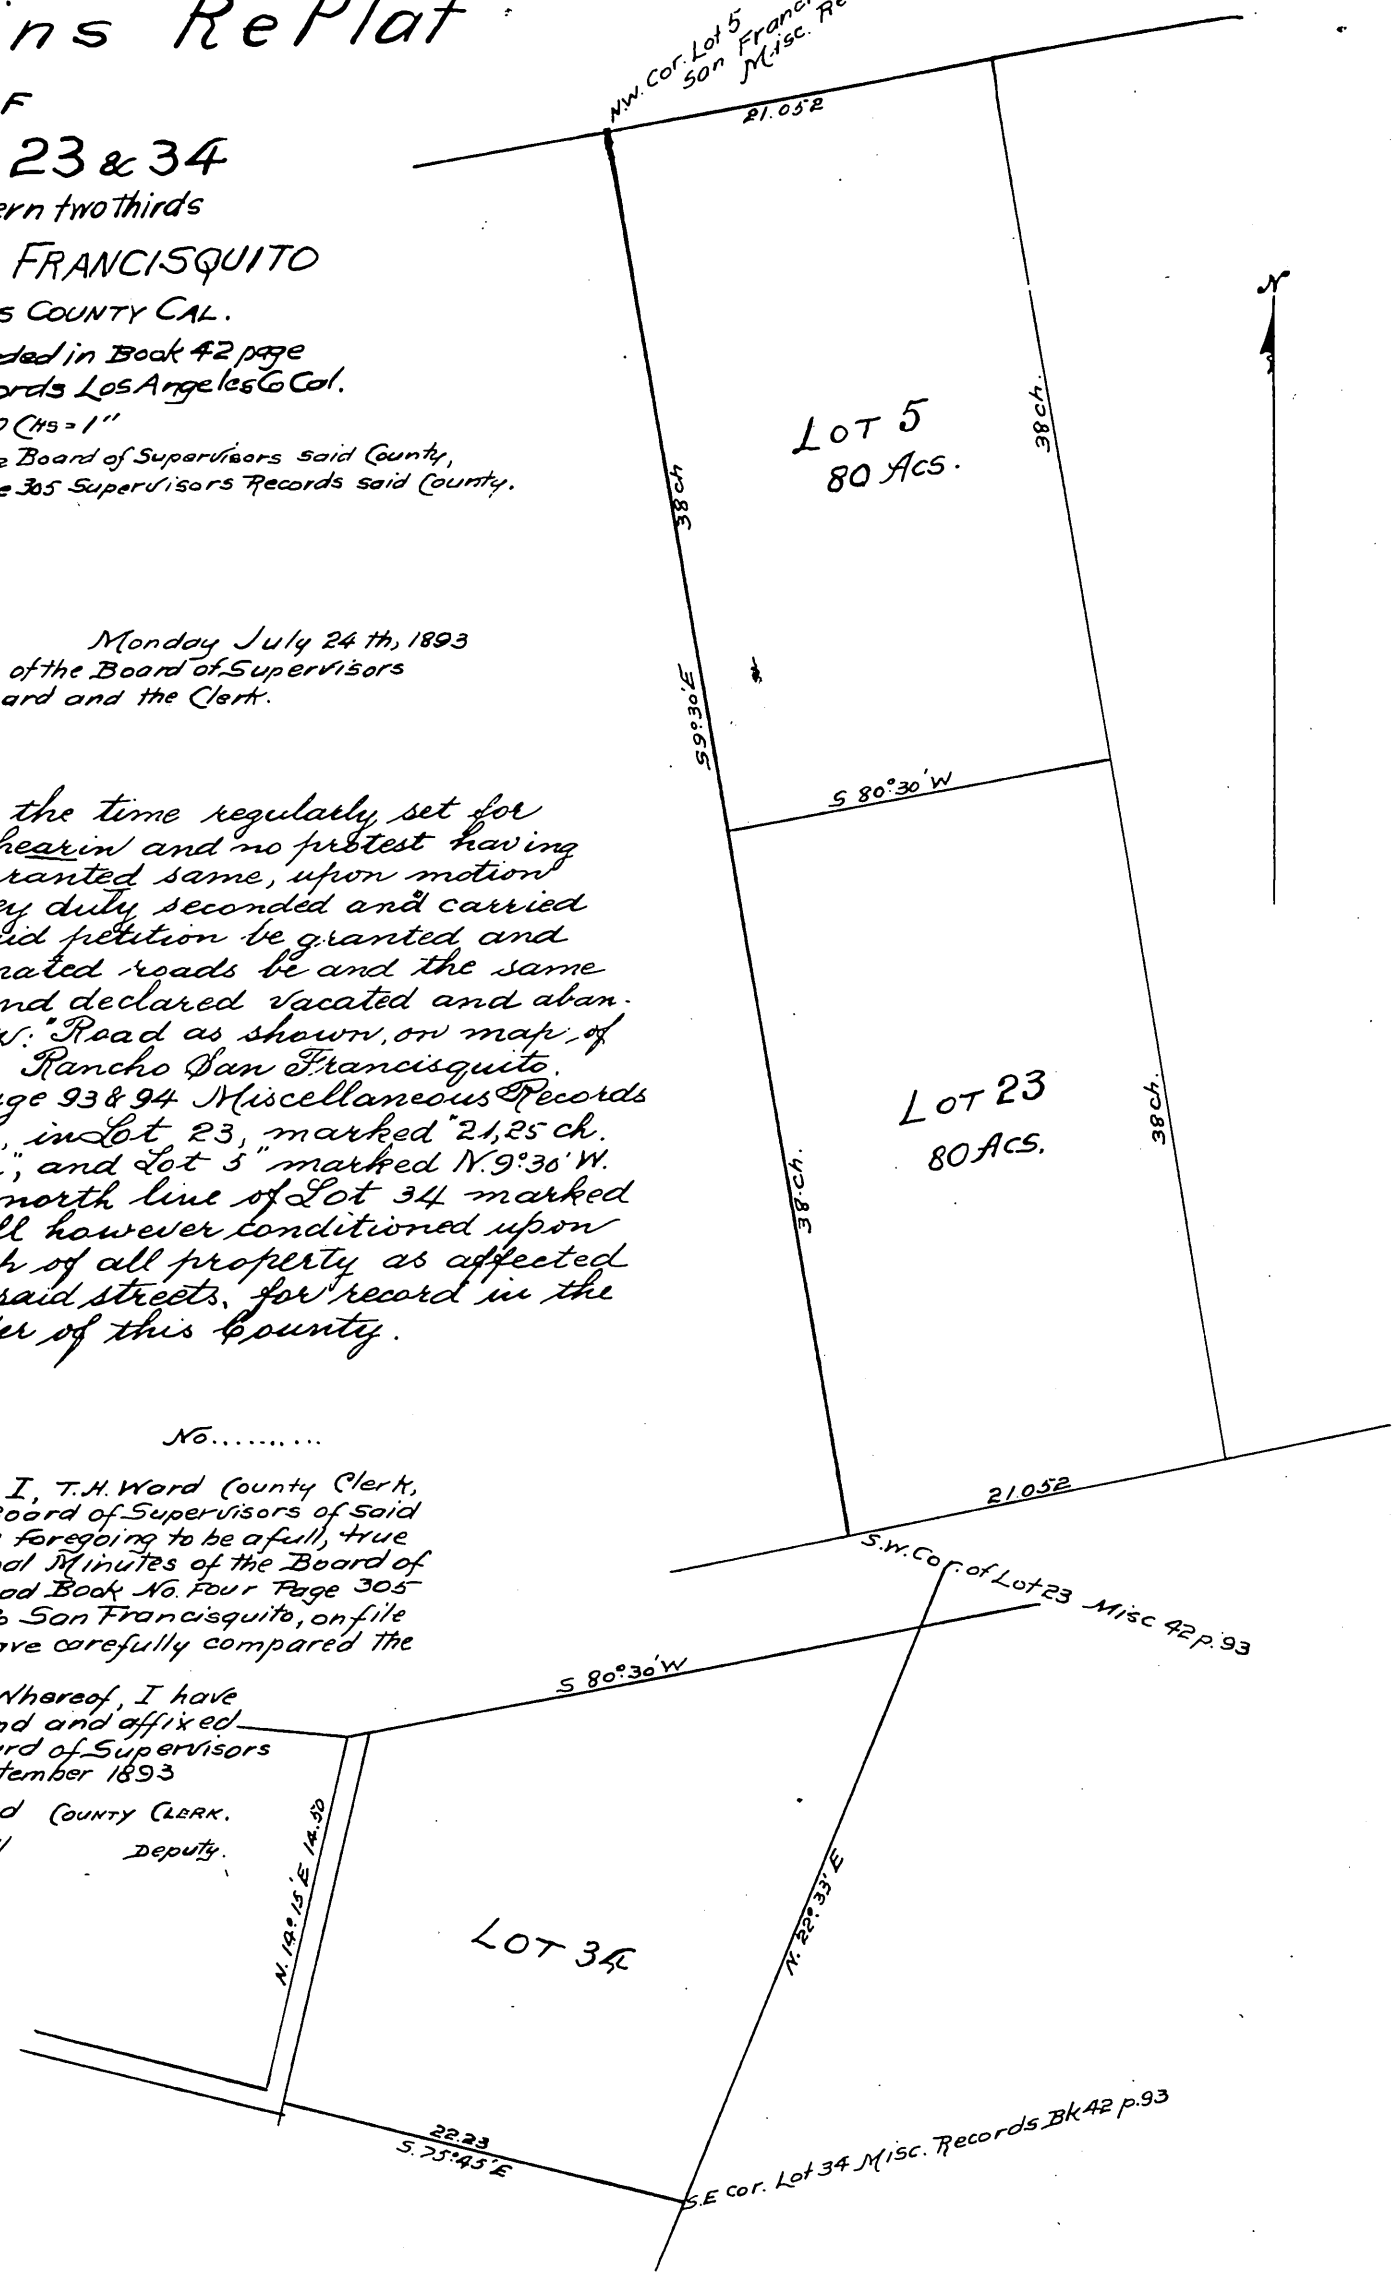 ns RePlat
F
23 & 34
ern two thirds
FRANCISQUITO
S COUNTY CAL.
ded in Book 42 page
ords Los Angeles Co Cal.
0 Chs = 1"
e Board of Supervisors said County,
e 305 Supervisors Records said County.
Monday July 24th, 1893
of the Board of Supervisors
ard and the Clerk.
the time regularly set for
hearin and no protest having
ranted same, upon motion
ey duly seconded and carried
id petition be granted and
nated roads be and the same
nd declared vacated and aban-
w: "Road as shown, on map, of
Rancho San Francisquito.
ge 93 & 94 Miscellaneous Records
, in Lot 23, marked "21,25 ch.
", and Lot 5" marked N.9°30'W.
north line of Lot 34 marked
ll however conditioned upon
h of all property as affected
said streets, for record in the
er of this County.
No..........
I, T.H. Ward County Clerk,
Board of Supervisors of said
foregoing to be a full, true
nal Minutes of the Board of
ad Book No. Four Page 305
o San Francisquito, on file
ave carefully compared the
Whereof, I have
nd and affixed
rd of Supervisors
tember 1893
d COUNTY CLERK.
Deputy.
N.W. Cor. Lot 5
San Franci
Misc. Re
21.052
N
LOT 5
80 Acs.
38 ch
38 ch.
S9°30'E
S 80°30'W
LOT 23
80 Acs.
38 ch.
38 ch.
21.052
S.W. Cor. of Lot 23 Misc 42 p. 93
S 80°30'W
N. 14°15'E 14.50
LOT 34
N. 22°33'E
22.23
S. 75°45'E
S.E Cor. Lot 34 Misc. Records Bk 42 p. 93